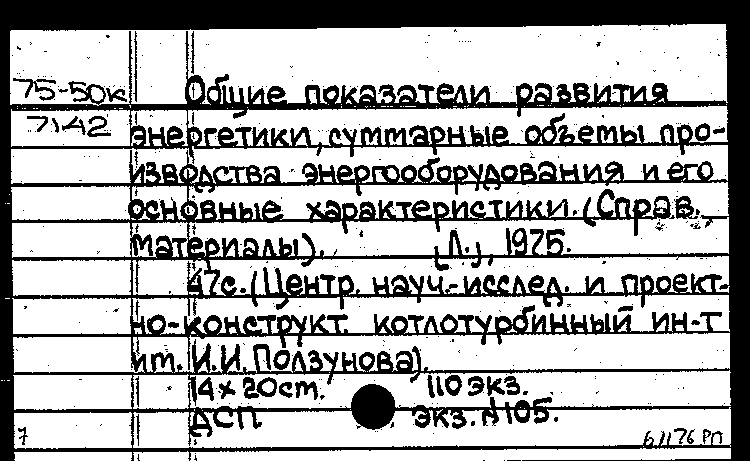 75-50к Общие показатели развития
7142 энергетики, суммарные объемы про-
изводства энергооборудования и его
основные характеристики. (Справ.
материалы). [Л.], 1975.
47с. (Центр. науч.-исслед. и проект-
но-конструкт. котлотурбинный ин-т
им. И.И. Ползунова).
14 × 20 ст. 110 экз.
ДСП экз. №105.
7 РП